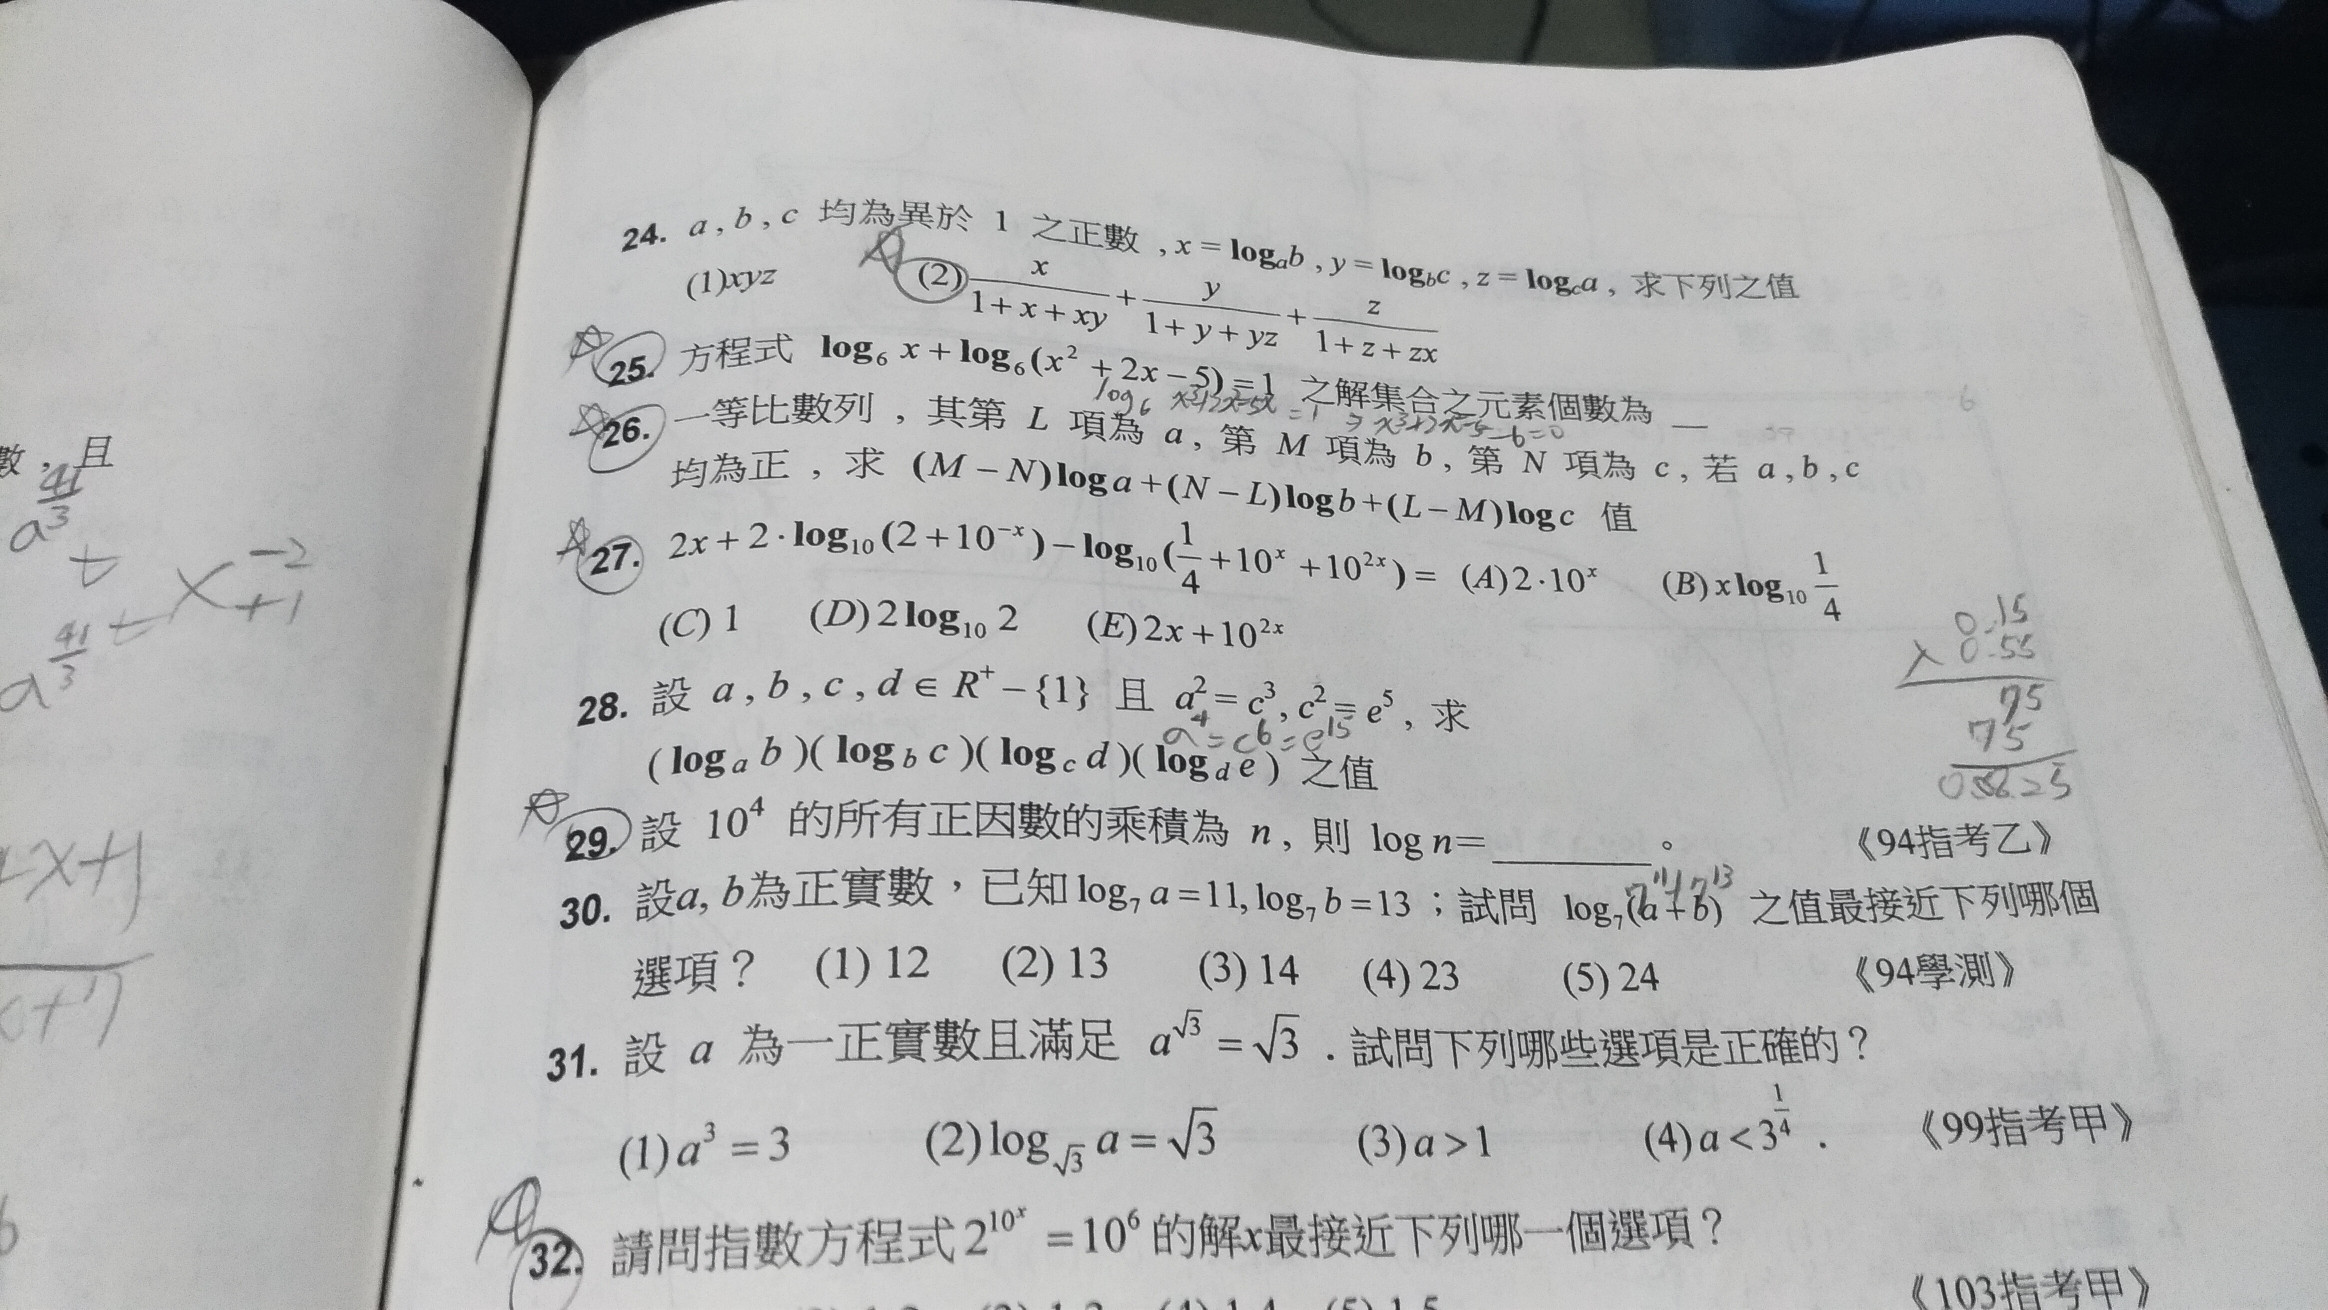 24. a , b , c 均為異於 1 之正數 , x = log_a b , y = log_b c , z = log_c a , 求下列之值
(1)xyz (2) x/(1+x+xy) + y/(1+y+yz) + z/(1+z+zx)
25. 方程式 log₆ x + log₆(x² + 2x − 5) = 1 之解集合之元素個數為 __
log₆
26. 一等比數列 , 其第 L 項為 a , 第 M 項為 b , 第 N 項為 c , 若 a , b , c
均為正 , 求 (M − N)log a + (N − L)log b + (L − M)log c 值
27. 2x + 2 · log₁₀(2 + 10⁻ˣ) − log₁₀(1/4 + 10ˣ + 10²ˣ) = (A) 2 · 10ˣ (B) x log₁₀ 1/4
(C) 1 (D) 2 log₁₀ 2 (E) 2x + 10²ˣ
28. 設 a , b , c , d ∈ R⁺ − {1} 且 a² = c³ , c² = e⁵ , 求
a⁴ = c⁶ = e¹⁵
( log_a b )( log_b c )( log_c d )( log_d e ) 之值
29. 設 10⁴ 的所有正因數的乘積為 n , 則 log n = ______ 。 《94指考乙》
30. 設a, b為正實數，已知 log₇ a = 11, log₇ b = 13；試問 log₇(a + b) 之值最接近下列哪個
選項？ (1) 12 (2) 13 (3) 14 (4) 23 (5) 24 《94學測》
31. 設 a 為一正實數且滿足 a^√3 = √3 . 試問下列哪些選項是正確的？
(1) a³ = 3 (2) log_√3 a = √3 (3) a > 1 (4) a < 3^(1/4) . 《99指考甲》
32. 請問指數方程式 2^(10ˣ) = 10⁶ 的解x最接近下列哪一個選項？
《103指考甲》
數，且
a^(41/3)
t
x −2
+1
a^(41/3) t
0.15
× 0.55
75
75